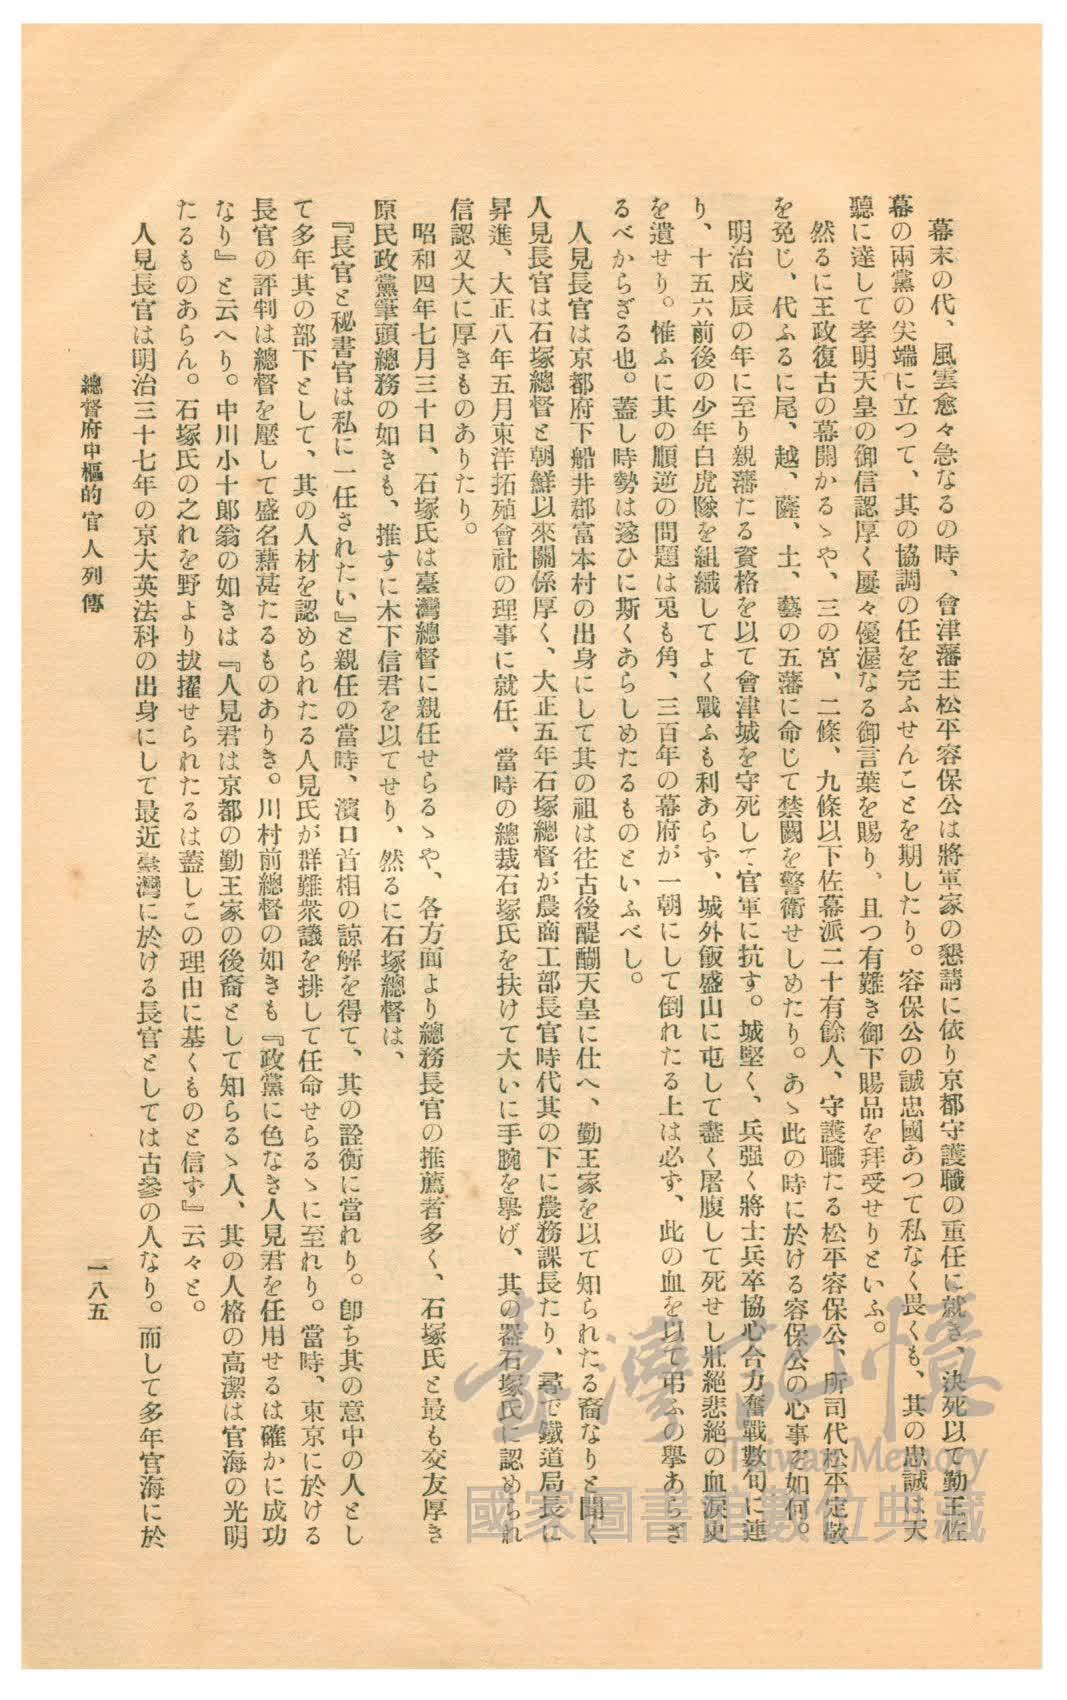 幕末の代、風雲愈々急なるの時、會津藩主松平容保公は將軍家の懇請に依り京都守護職の重任に就き、決死以て勤王佐
幕の兩黨の尖端に立つて、其の協調の任を完ふせんことを期したり。容保公の誠忠國あつて私なく畏くも、其の忠誠は天
聽に達して孝明天皇の御信認厚く屢々優渥なる御言葉を賜り、且つ有難き御下賜品を拜受せりといふ。
然るに王政復古の幕開かるゝや、三の宮、二條、九條以下佐幕派二十有餘人、守護職たる松平容保公、所司代松平定敬
を免じ、代ふるに尾、越、薩、土、藝の五藩に命じて禁闕を警衞せしめたり。あゝ此の時に於ける容保公の心事を如何。
明治戊辰の年に至り親藩たる資格を以て會津城を守死して官軍に抗す。城堅く、兵强く將士兵卒協心合力奮戰數旬に連
り、十五六前後の少年白虎隊を組織してよく戰ふも利あらず、城外飯盛山に屯して盡く屠腹して死せし壯絕悲絕の血淚史
を遺せり。惟ふに其の順逆の問題は兎も角、三百年の幕府が一朝にして倒れたる上は必ず、此の血を以て弔ふの擧あらざ
るべからざる也。蓋し時勢は遂ひに斯くあらしめたるものといふべし。
人見長官は京都府下船井郡富本村の出身にして其の祖は往古後醍醐天皇に仕へ、勤王家を以て知られたる裔なりと聞く
人見長官は石塚總督と朝鮮以來關係厚く、大正五年石塚總督が農商工部長官時代其の下に農務課長たり、尋で鐵道局長に
昇進、大正八年五月東洋拓殖會社の理事に就任、當時の總裁石塚氏を扶けて大いに手腕を擧げ、其の器石塚氏に認められ
信認又大に厚きものありたり。
昭和四年七月三十日、石塚氏は臺灣總督に親任せらるゝや、各方面より總務長官の推薦者多く、石塚氏と最も交友厚き
原民政黨筆頭總務の如きも、推すに木下信君を以てせり、然るに石塚總督は、
『長官と秘書官は私に一任されたい』と親任の當時、濱口首相の諒解を得て、其の詮衡に當れり。卽ち其の意中の人とし
て多年其の部下として、其の人材を認められたる人見氏が群難衆議を排して任命せらるゝに至れり。當時、東京に於ける
長官の評判は總督を壓して盛名藉甚たるものありき。川村前總督の如きも『政黨に色なき人見君を任用せるは確かに成功
なり』と云へり。中川小十郞翁の如きは『人見君は京都の勤王家の後裔として知らるゝ人、其の人格の高潔は官海の光明
たるものあらん。石塚氏の之れを野より拔擢せられたるは蓋しこの理由に基くものと信ず』云々と。
人見長官は明治三十七年の京大英法科の出身にして最近臺灣に於ける長官としては古參の人なり。而して多年官海に於
總督府中樞的官人列傳
一八五
臺灣記憶
Taiwan Memory
國家圖書館數位典藏